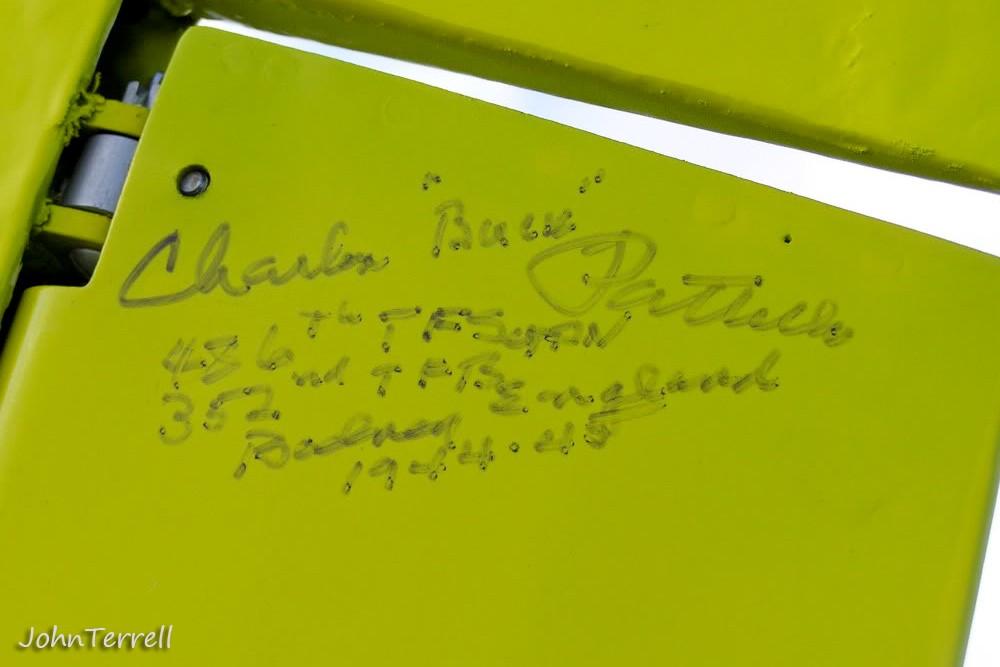 Charles "Buck" Pattillo
486th TFSQDN
352nd England
Bodney
1944-45
JohnTerrell